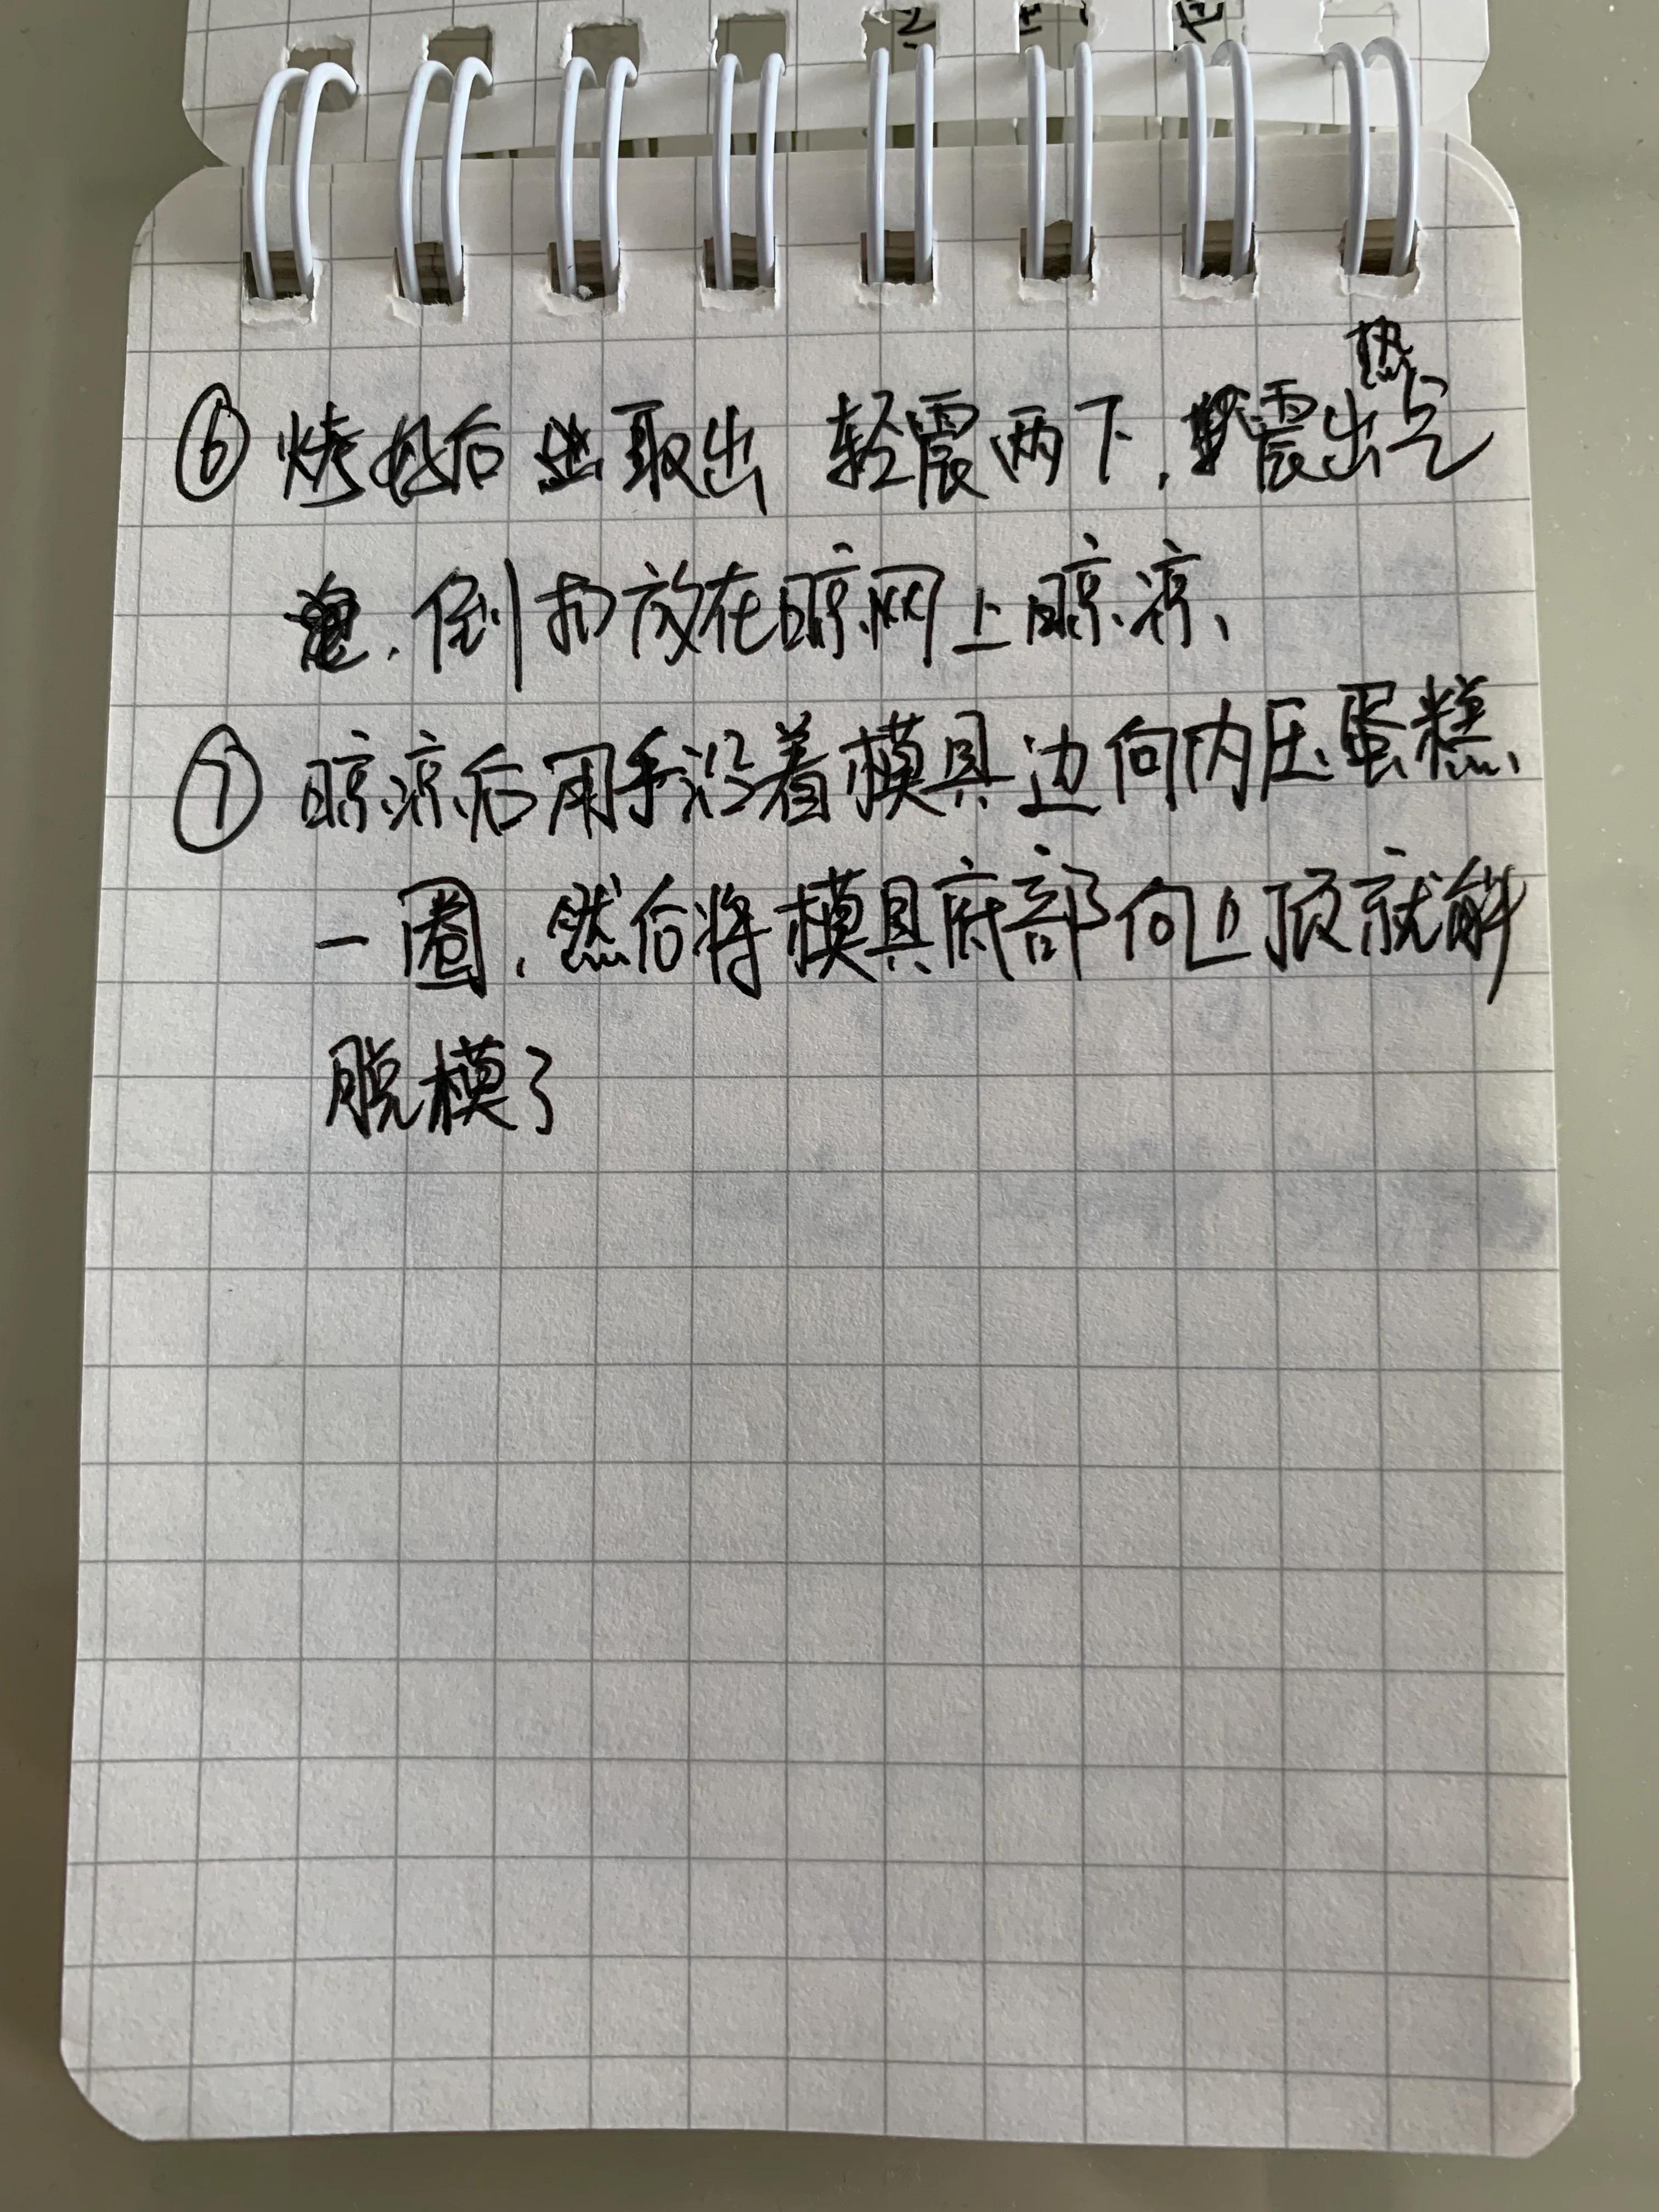 ⑥ 烤好后取出 轻震两下，震出热气
，倒扣放在晾网上晾凉、
⑦ 晾凉后用手沿着模具边向内压蛋糕、
一圈，然后将模具底部向上顶就能
脱模了